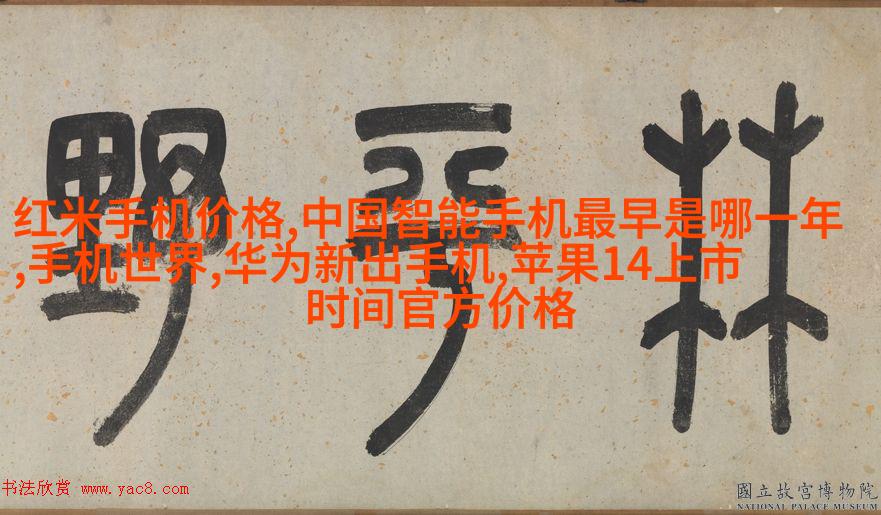 林平野
红米手机价格,中国智能手机最早是哪一年
,手机世界,华为新出手机,苹果14上市
时间官方价格
书法欣赏 www.yac8.com
國立故宮博物院
NATIONAL PALACE MUSEUM